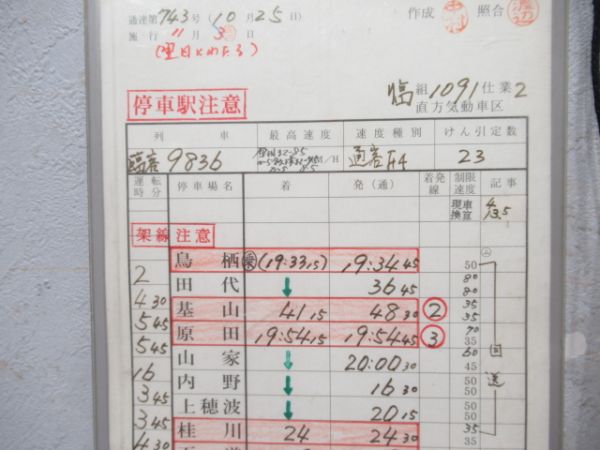 通達第743号(10月25日) 作成 照合
施行 11月3日
停車駅注意
臨組1091仕業2
直方気動車区
列車 最高速度 速度種別 けん引定数
臨客9836 通客A4 23
運転時分 停車場名 着 発(通) 着発線 制限速度 記事
現車 4
換算 13.5
架線注意
鳥栖 (19:33 15) 19:34 45 50
2
田代 ↓ 36 45 80 80
4 30
基山 41 15 48 30 ② 35 35
5 45
原田 19:54 15 19:54 45 ③ 70 35 回送
5 45
山家 ↓ 20:00 30 60 45
16
内野 ↓ 16 30 50 50
3 45
上穂波 ↓ 20 15 50 50
3 45
桂川 24 24 30 35
4 30